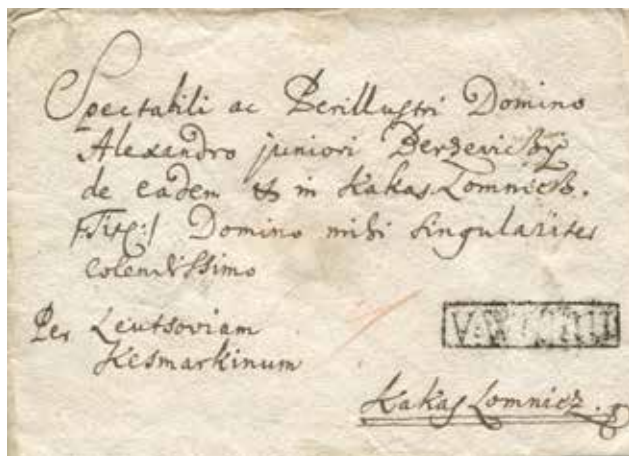 Spectabili ac Perillustri Domino
Alexandro juniori Berzeviczy
de eadem & in KakasLomnicz.
/:Tit:/ Domino mihi singulariter
colendissimo
Per Leutsoviam
Kesmarkinum
KakasLomnicz.